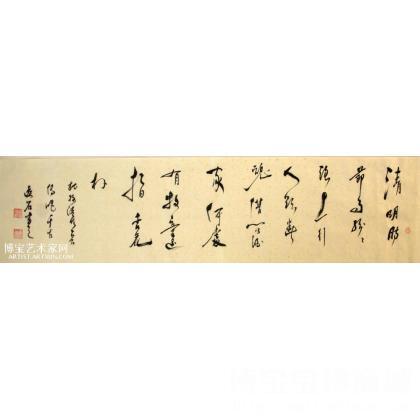 清明时
節雨紛〻
路上行
人欲斷
魂借问酒
家何處
有牧童遥
指杏花
村
杜牧清明
千古
石書
博宝艺术家网
ARTIST.ARTXUN.COM